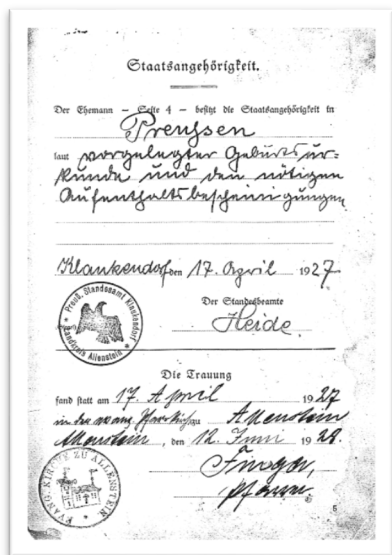 Staatsangehörigkeit.
Der Ehemann – Seite 4 – besitzt die Staatsangehörigkeit in
Preußsen
laut vorgelegter Geburtsur-
kunde und den nötigen
Aufenthaltsbescheinigungen
Klankendorf den 17. April 1927
Preuß. Standesamt Klaukendorf
Landkreis Allenstein
Der Standesbeamte
Heide
Die Trauung
fand statt am 17. April 1927
in der evang. Pfarrkirche zu Allenstein
Allenstein, den 12. Juni 1928.
EVANG. KIRCHE ZU ALLENSTEIN
Pfarrer
5